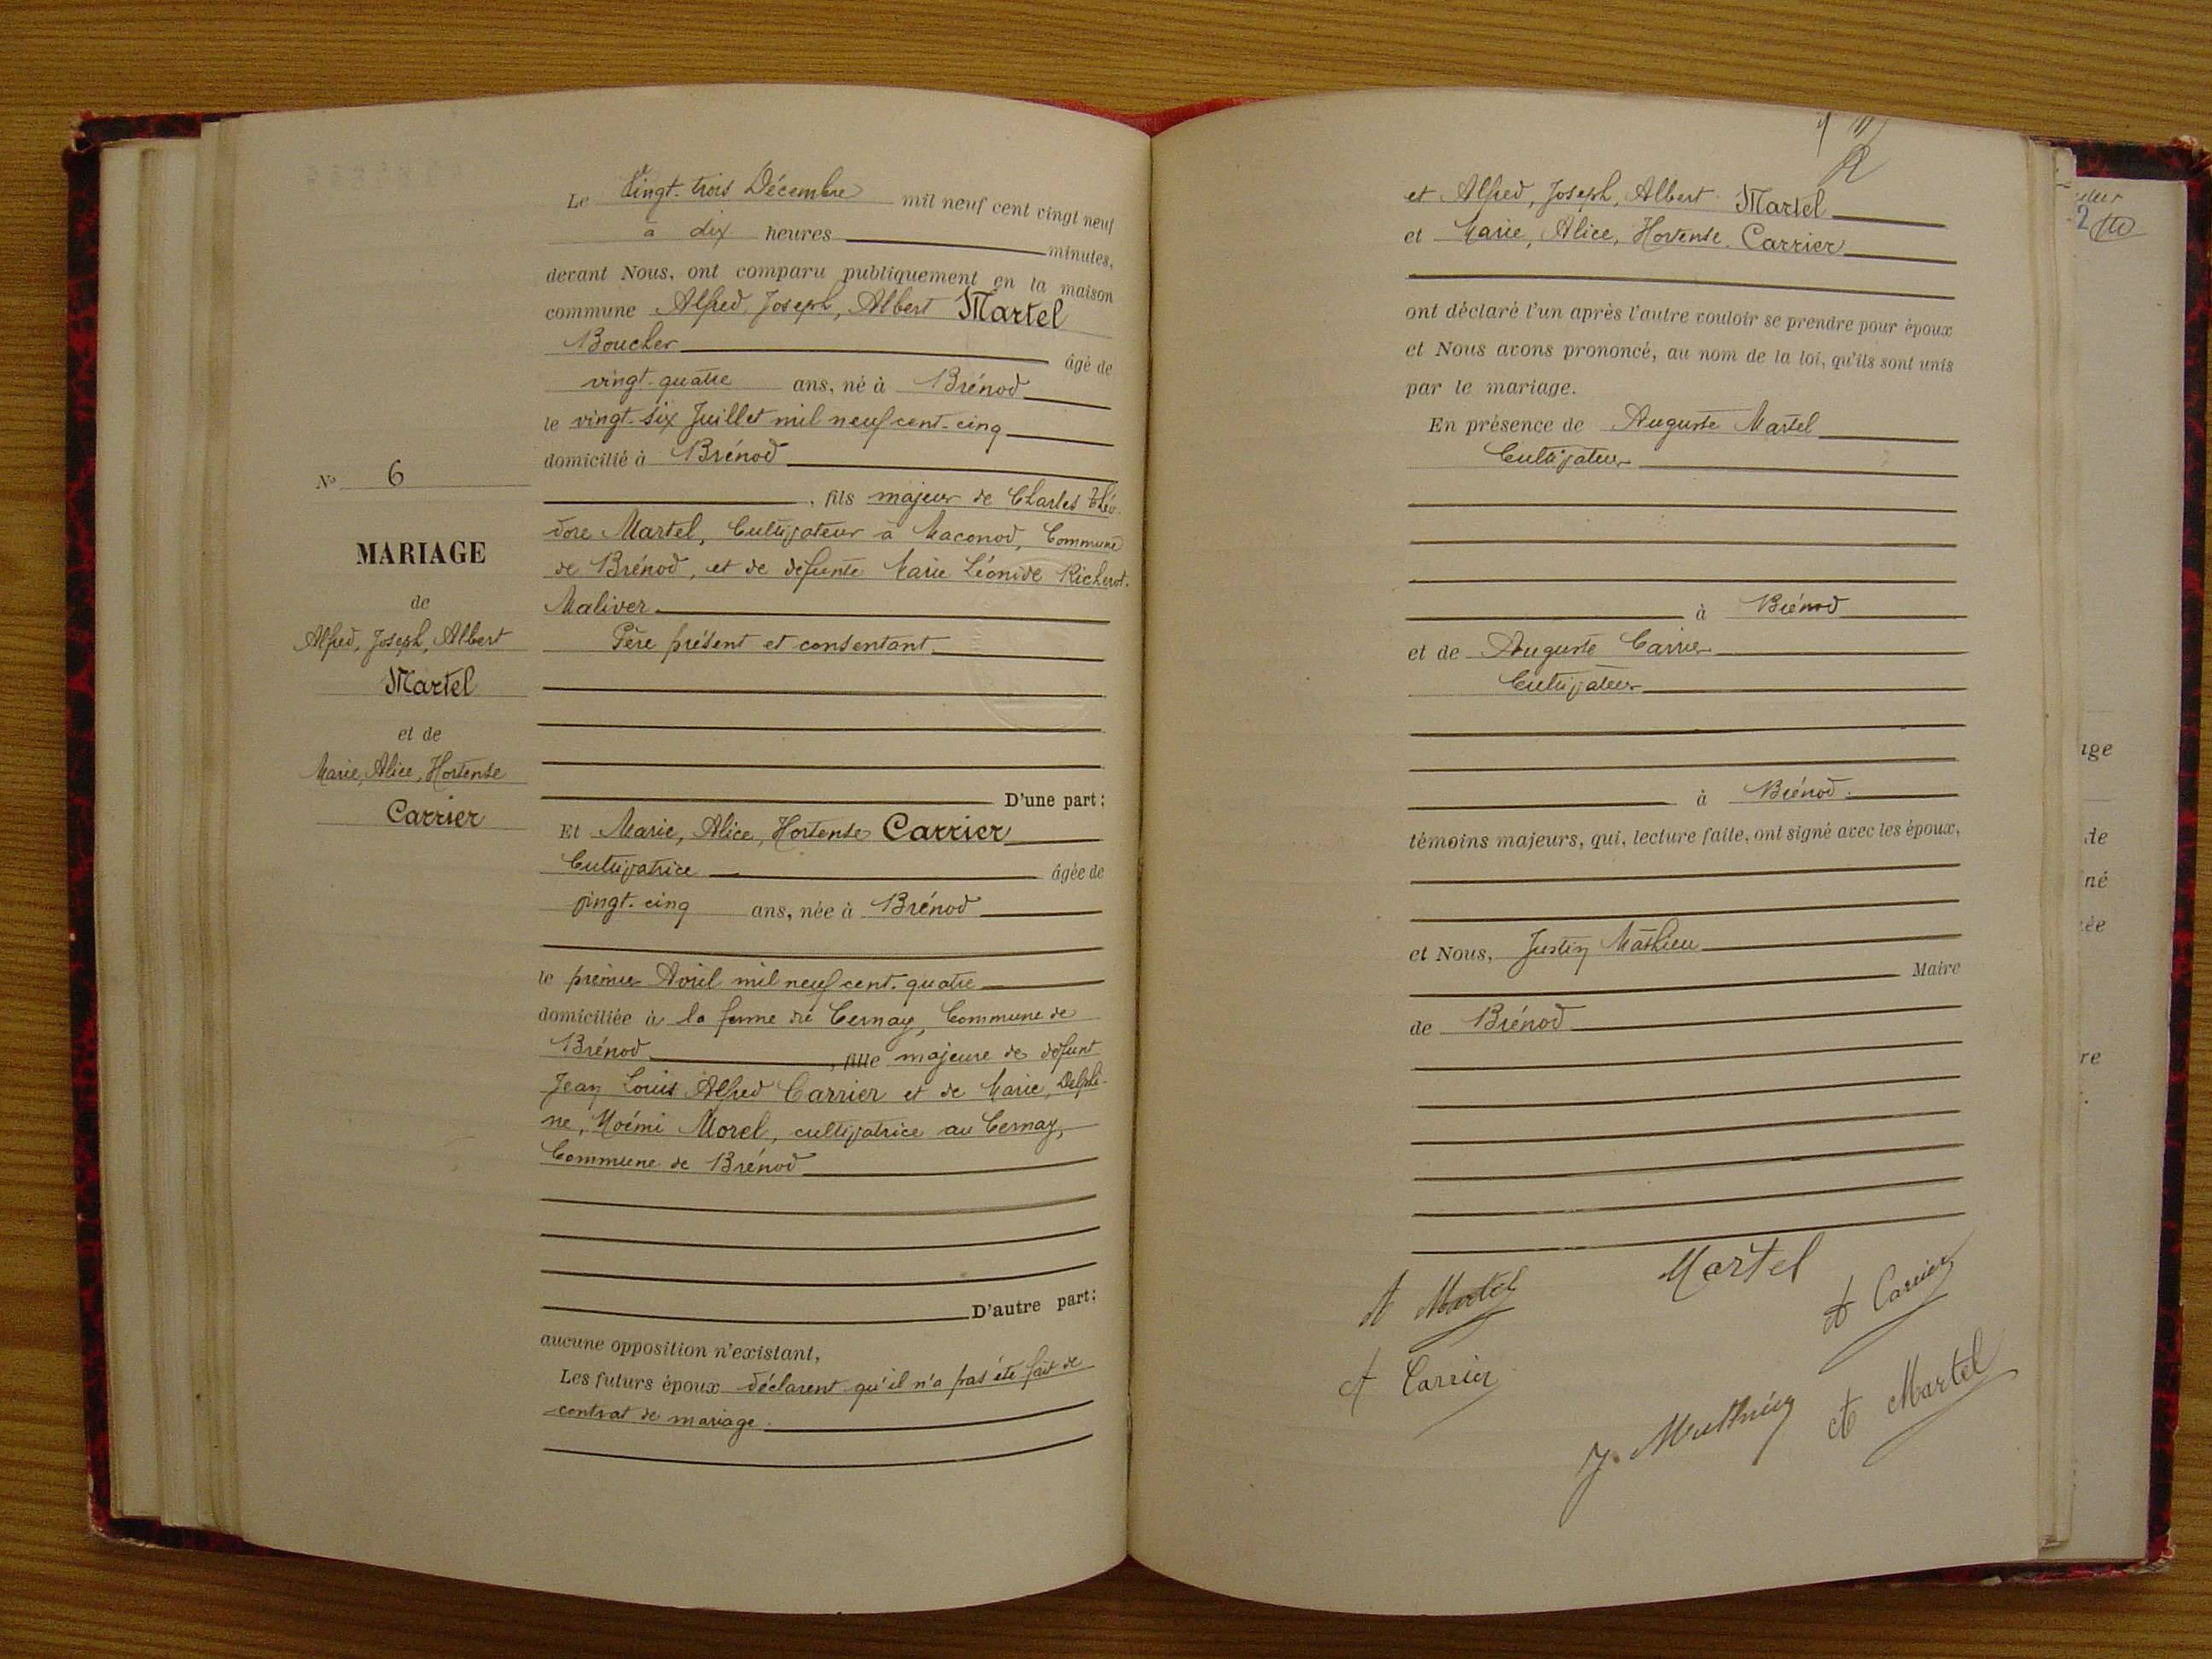 Le Vingt-trois Décembre mil neuf cent vingt neuf
à dix heures minutes,
devant Nous, ont comparu publiquement en la maison
commune Alfred, Joseph, Albert Martel
Boucher âgé de
vingt-quatre ans, né à Brénod
le vingt-six Juillet mil neuf cent-cinq
domicilié à Brénod
, fils majeur de Charles Théo-
dore Martel, Cultivateur à Maconod, Commune
de Brénod, et de defunte Marie Léonide Richerot-
Maliver
Père présent et consentant
D'une part;
Et Marie, Alice, Hortense Carrier
Cultivatrice âgée de
vingt-cinq ans, née à Brénod
le premier Avril mil neuf cent-quatre
domiciliée à la ferme de Cernay, Commune de
Brénod, fille majeure de defunt
Jean Louis Alfred Carrier et de Marie, Delphi-
ne, Noémi Morel, cultivatrice au Cernay,
Commune de Brénod
D'autre part;
aucune opposition n'existant,
Les futurs époux déclarent qu'il n'a pas été fait de
contrat de mariage.
No 6
MARIAGE
de
Alfred, Joseph, Albert
Martel
et de
Marie, Alice, Hortense
Carrier
et Alfred, Joseph, Albert Martel
et Marie, Alice, Hortense Carrier
ont déclaré l'un après l'autre vouloir se prendre pour époux
et Nous avons prononcé, au nom de la loi, qu'ils sont unis
par le mariage.
En présence de Auguste Martel
Cultivateur
à Brénod
et de Auguste Carrier
Cultivateur
à Brénod.
témoins majeurs, qui, lecture faite, ont signé avec les époux,
et Nous, Justin Mathieu
Maire
de Brénod
A Martel
Martel
A Carrier
A Carrier
J. Mathieu
A Martel
2
ige
de
né
ée
re